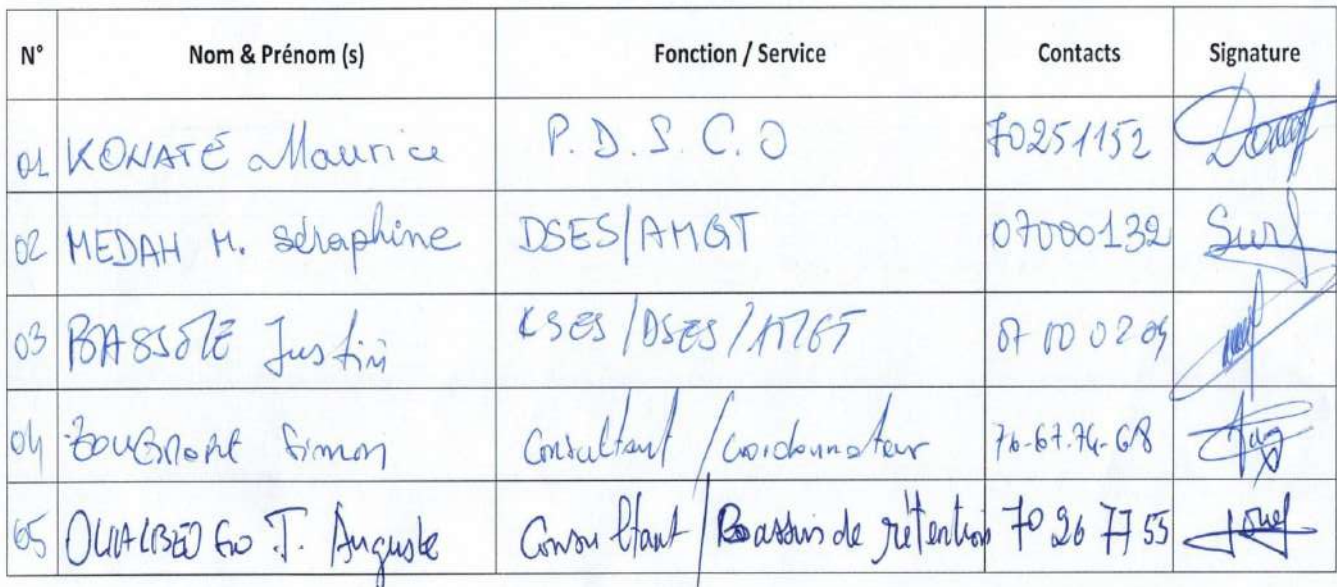 N° Nom & Prénom (s) Fonction / Service Contacts Signature
01 KONATÉ Maurice P.D.S.C.O 70251152
02 MEDAH M. séraphine DSES/AMGT 07000132
03 BASSOLE Justin CSES/DSES/AMGT 07 00 02 09
04 Simon Consultant / Coordonnateur 76-67.74-68
05 OUALBEOGO T. Auguste Consultant / Bassin de rétention 70 26 77 55